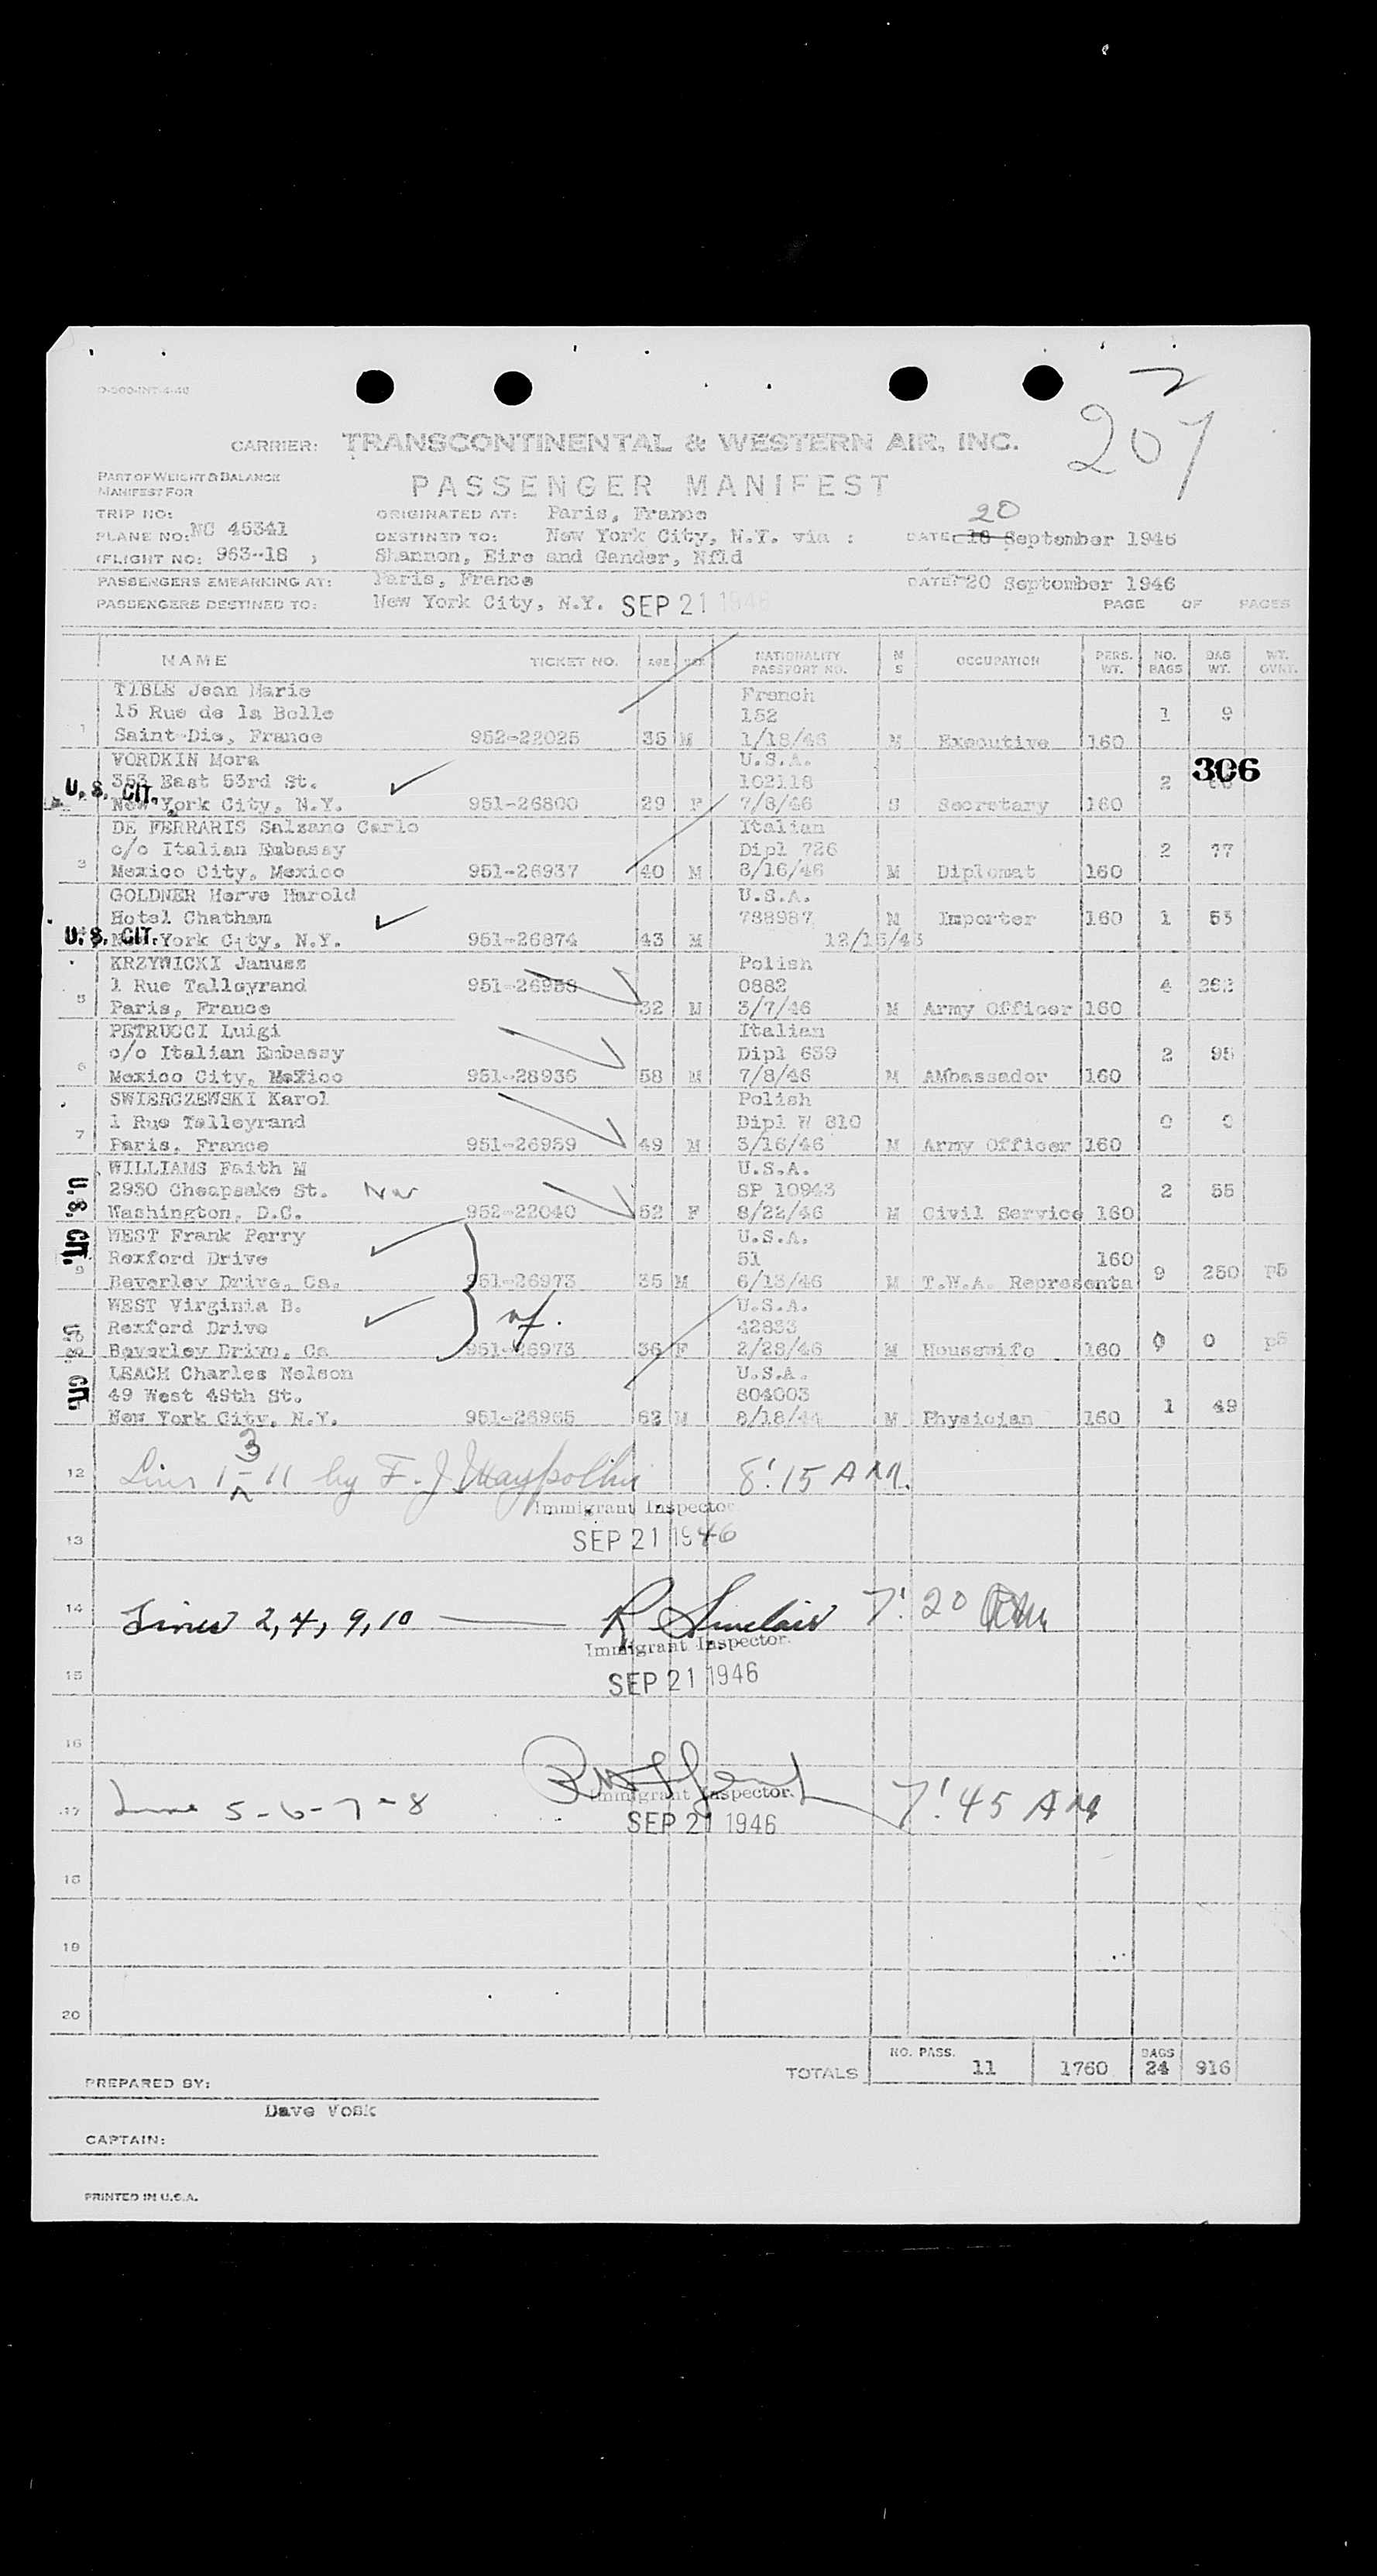 O-500-INT-4-46
207
CARRIER: TRANSCONTINENTAL & WESTERN AIR, INC.
PART OF WEIGHT & BALANCE
MANIFEST FOR
PASSENGER MANIFEST
TRIP NO:
ORIGINATED AT: Paris, France
20
PLANE NO: NC 45341
DESTINED TO: New York City, N.Y. via :
DATE: 18 September 1946
(FLIGHT NO: 963-18 )
Shannon, Eire and Gander, Nfld
PASSENGERS EMBARKING AT: Paris, France
DATE: 20 September 1946
PASSENGERS DESTINED TO: New York City, N.Y. SEP 21 1946
PAGE OF PAGES
NAME TICKET NO. AGE NATIONALITY PASSPORT NO. M S OCCUPATION PERS. WT. NO. BAGS BAG WT. WT. OVNT.
TIBLE Jean Marie French
15 Rue de la Bolle 152 1 9
1 Saint-Die, France 952-22025 35 M 1/18/46 M Executive 160
VORDKIN Mora U.S.A. 306
U.S. CIT. 353 East 53rd St. 102118 2
New York City, N.Y. 951-26800 29 F 7/8/46 S Secretary 160
DE FERRARIS Salzano Carlo Italian
c/o Italian Embassy Dipl 726 2 77
3 Mexico City, Mexico 951-26937 40 M 8/16/46 M Diplomat 160
GOLDNER Herve Harold U.S.A.
Hotel Chatham 788987 M Importer 160 1 53
U.S. CIT. New York City, N.Y. 951-26874 43 M 12/15/45
KRZYWICKI Janusz Polish
1 Rue Talleyrand 951-26958 0882 4 262
5 Paris, France 32 M 3/7/46 M Army Officer 160
PETRUCCI Luigi Italian
c/o Italian Embassy Dipl 659 2 95
6 Mexico City, MeXico 951-28936 58 M 7/8/46 M AMbassador 160
SWIERCZEWSKI Karol Polish
1 Rue Talleyrand Dipl W 810 0 0
7 Paris, France 951-26959 49 M 3/16/46 M Army Officer 160
WILLIAMS Faith M U.S.A.
U.S. CIT. 2930 Cheapsake St. SP 10943 2 55
Washington, D.C. 952-22040 52 F 8/22/46 M Civil Service 160
WEST Frank Perry U.S.A.
Rexford Drive 51 160
9 Beverley Drive, Ca. 951-26973 35 M 6/13/46 M T.W.A. Representa 9 250 p5
WEST Virginia B. U.S.A.
U.S. CIT. Rexford Drive 42833
Beverley Drive, Ca 951-26973 36 F 2/28/46 M Housewife 160 0 0 p5
LEACH Charles Nelson U.S.A.
49 West 49th St. 804003
New York City, N.Y. 951-26965 62 M 8/18/44 M Physician 160 1 49
3
12 Lines 1 - 11 by F. J. 8:15 AM.
Immigrant Inspector
13 SEP 21 1946
14 Lines 2, 4, 9, 10 R Sinclair 7:20
Immigrant Inspector.
15 SEP 21 1946
16
17 Line 5-6-7-8 Immigrant Inspector. 7:45 AM
SEP 21 1946
18
19
20
TOTALS NO. PASS. 11 1760 BAGS 24 916
PREPARED BY:
Dave Vosk
CAPTAIN:
PRINTED IN U.S.A.